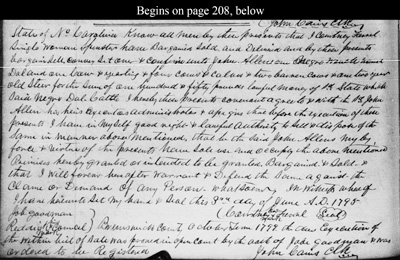 Begins on page 208, below
John Cains Clk
State of No Carolina Know all men by these presents that I
Single Woman Spinster have Bargaind Sold and Deliverd and by these presents
bargain Sell Convey and confirm unto John Allenson Negro
and one Cow & yearling & four Cows & Calves & two barren Cows & one two year
old Steer for the Sum of one hundred & fifty pounds lawful money of sd State which
Said Negro Cattle I hereby these presents covenant agree to & with the sd John
Allen his heirs Executors administrators & assigns that before the execution of these
presents I have in myself good right & lawful authority to sell & dispose of the
Same in manner above mentioned, that he the said John Allens may by
force & virtue of the presents have hold use and occupy the above mentioned
Premises hereby granted or intended to be granted, Bargaind & Sold &
that I will forever hereafter Warrant & Defend the Same against the
Claim or Demand of any Person whatsoever In Witness whereof
I have hereunto Set my hand & Seal this 3rd day of June A.D. 1795
Job goodman
Brunswick Court October Term 1799 the due Execution of
the within bill of Sale was proved in open court by the oath of Job goodman & was
ordered to be Registered
John Cains Clk